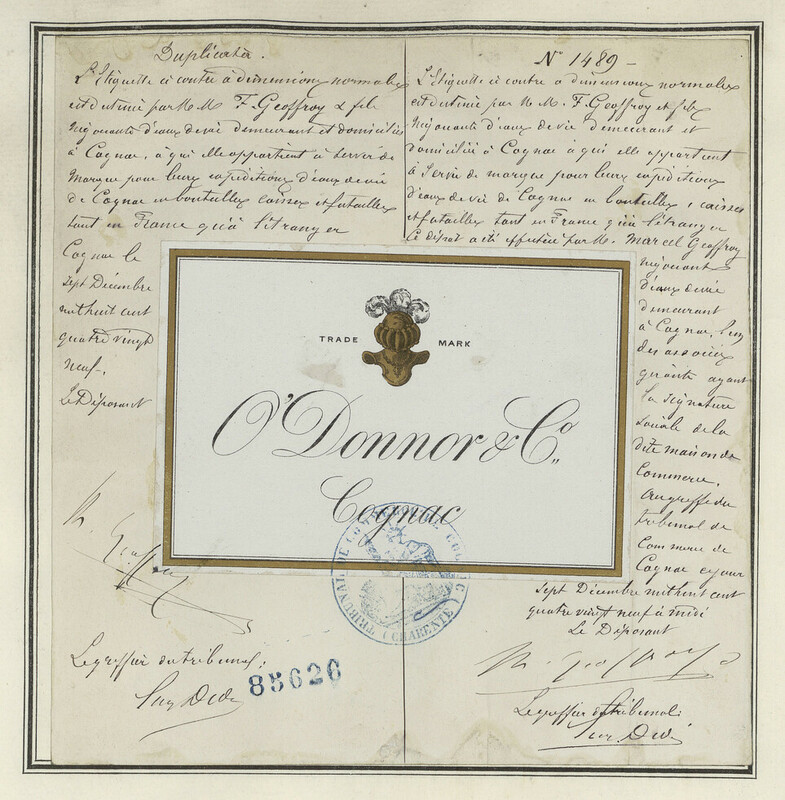 Duplicata.
L'Etiquette ci contre à dimensions normales
est destiné par M.M. F. Geoffroy & fils
Négociants d'eaux de vie demeurant et domiciliés
à Cognac, à qui elle appartient à servir de
Marque pour leurs expéditions d'eaux de vie
de Cognac en bouteilles caisses et futailles
tant en France qu'à l'étranger
Cognac le
sept Décembre
mil huit cent
quatre vingt
neuf.
Le Déposant
M. Geoffroy
Le greffier du tribunal;
85626
N° 1489
L'Etiquette ci contre à dimensions normales
est destiné par M.M. F. Geoffroy et fils
Négociants d'eaux de vie demeurant et
domiciliés à Cognac à qui elle appartient
à Servir de marque pour leurs expéditions
d'eaux de vie de Cognac en bouteilles, caisses
et futailles tant en France qu'à l'étranger
Ce dépôt a été effectué par M. Marcel Geoffroy
négociant
d'eaux de vie
demeurant
à Cognac, l'un
des associés
gérants ayant
la signature
sociale de la
dite maison de
Commerce.
Au greffe du
tribunal de
Commerce de
Cognac ce jour
sept Décembre mil huit cent
quatre vingt neuf à midi
Le Déposant
M. Geoffroy
Le greffier du tribunal;
TRADE MARK
O'Donnor & Co.
Cognac
TRIBUNAL DE COMMERCE COGNAC (CHARENTE)